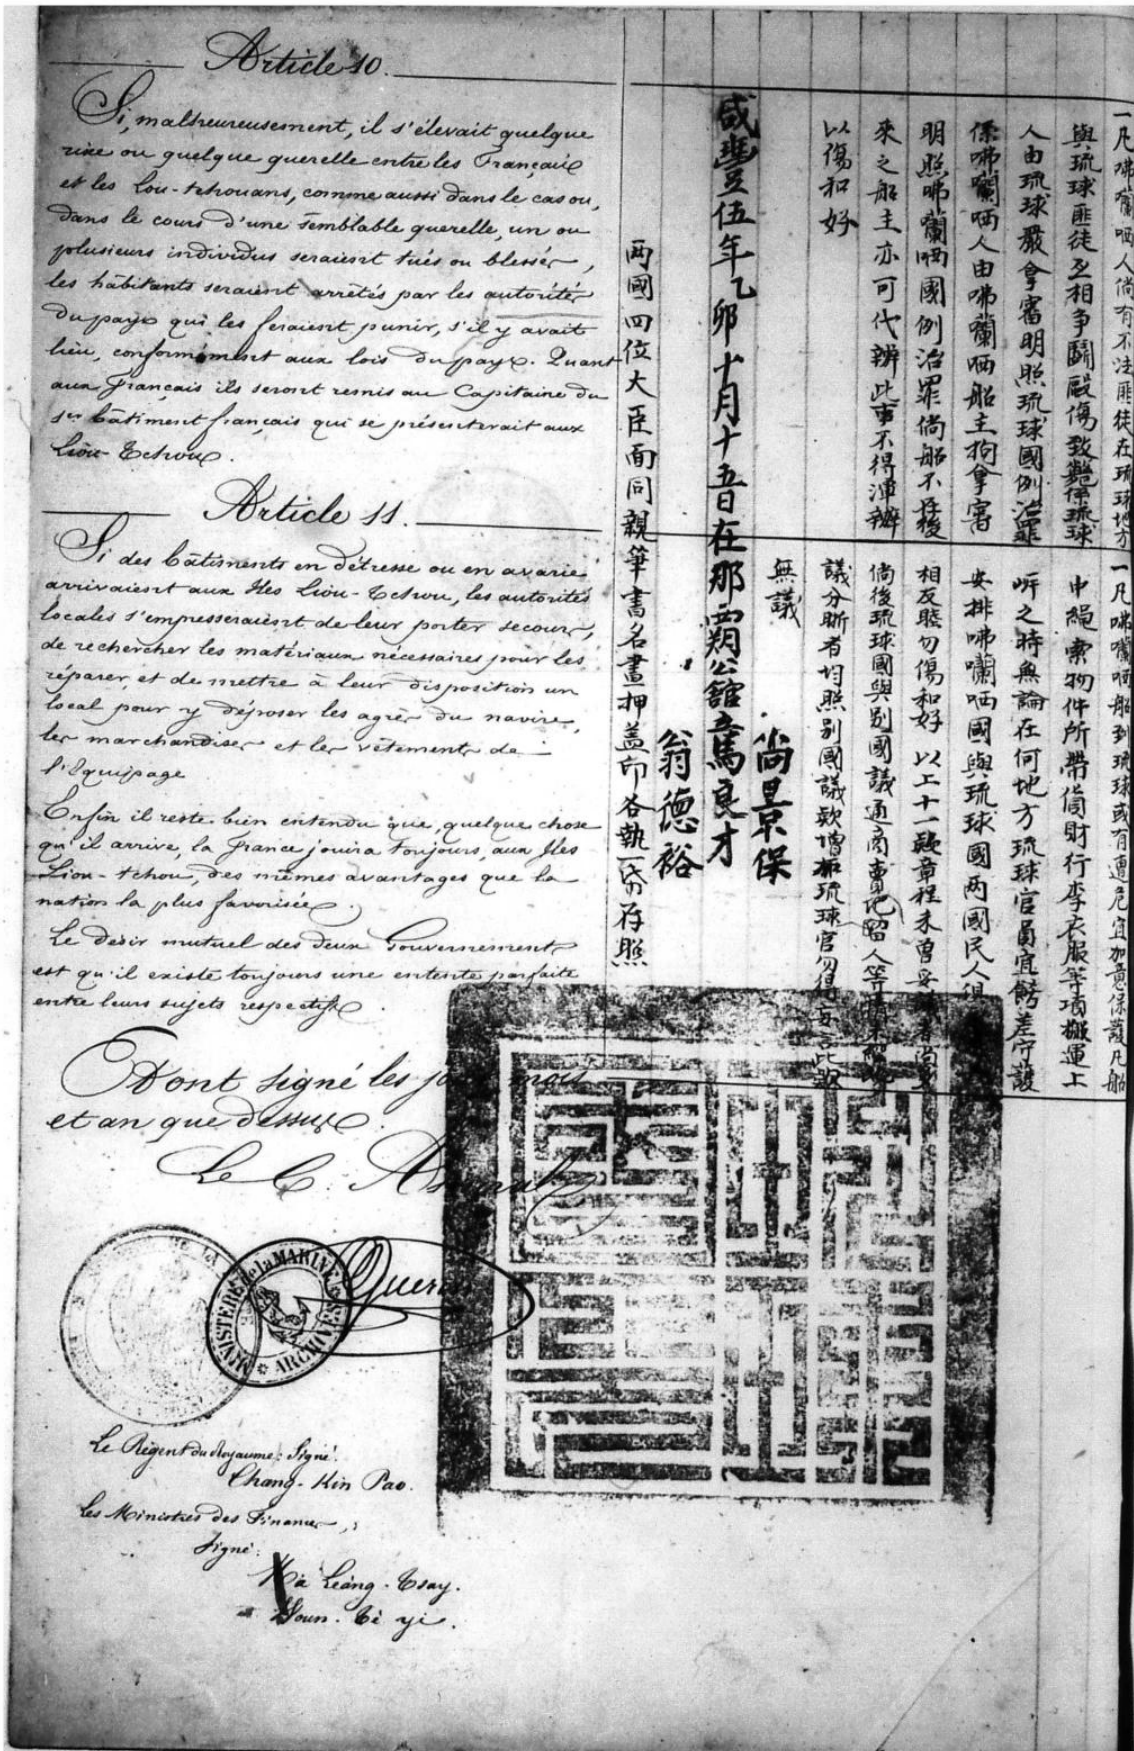 Article 10.
Si, malheureusement, il s'élevait quelque
rixe ou quelque querelle entre les Français
et les Lou-tchouans, comme aussi dans le cas ou,
dans le cours d'une semblable querelle, un ou
plusieurs individus seraient tués ou blessés,
les habitants seraient arrêtés par les autorités
du pays qui les feraient punir, s'il y avait
lieu, conformément aux lois du pays. Quant
aux Français ils seront remis au Capitaine du
1er bâtiment français qui se présenterait aux
Liou-Tchou.
Article 11.
Si des bâtiments en détresse ou en avarie
arrivaient aux Iles Liou-Tchou, les autorités
locales s'empresseraient de leur porter secours,
de rechercher les matériaux nécessaires pour les
réparer, et de mettre à leur disposition un
local pour y déposer les agrès du navire,
les marchandises et les vêtements de
l'Equipage
Enfin il reste bien entendu que, quelque chose
qu'il arrive, la France jouira toujours, aux Iles
Liou-tchou, des mêmes avantages que la
nation la plus favorisée.
Le desir mutuel des deux Gouvernements
est qu'il existe toujours une entente parfaite
entre leurs sujets respectifs.
Dont signé les jour mois
et an que dessus.
Le C.
Guerin
MINISTERE de la MARINE
ARCHIVES
Le Régent du Royaume: Signé:
Chang-Kin Pao.
Les Ministres des Finances,
Signé:
Mà Leàng-Tsay.
Woun-Té yi.
一凡咈囒哂人倘有不法匪徒在琉球地方
與琉球匪徒互相争鬭毆傷致斃係琉球
人由琉球嚴拿審明照琉球國例治罪
係咈囒哂人由咈囒哂船主拘拿審
明照咈囒哂國例治罪倘船不在後
來之船主亦可代辦此事不得渾辦
以傷和好
一凡咈囒哂船到琉球或有遭危宜加意保護凡船
中繩索物件所帶貨財行李衣服等項搬運上
岸之時無論在何地方琉球官員宜飭差守護
安排咈囒哂國與琉球國两國民人俱
相反睦勿傷和好 以上十一款章程未曾妥
倘後琉球國與别國議通商賣地留人等
議分晰者均照别國議款增補琉球官勿得
無議
咸豐伍年乙卯十月十五日在那霸公舘立
尚景保
馬良才
翁德裕
两國四位大臣面同親筆書名畫押盖印各執一帋存照